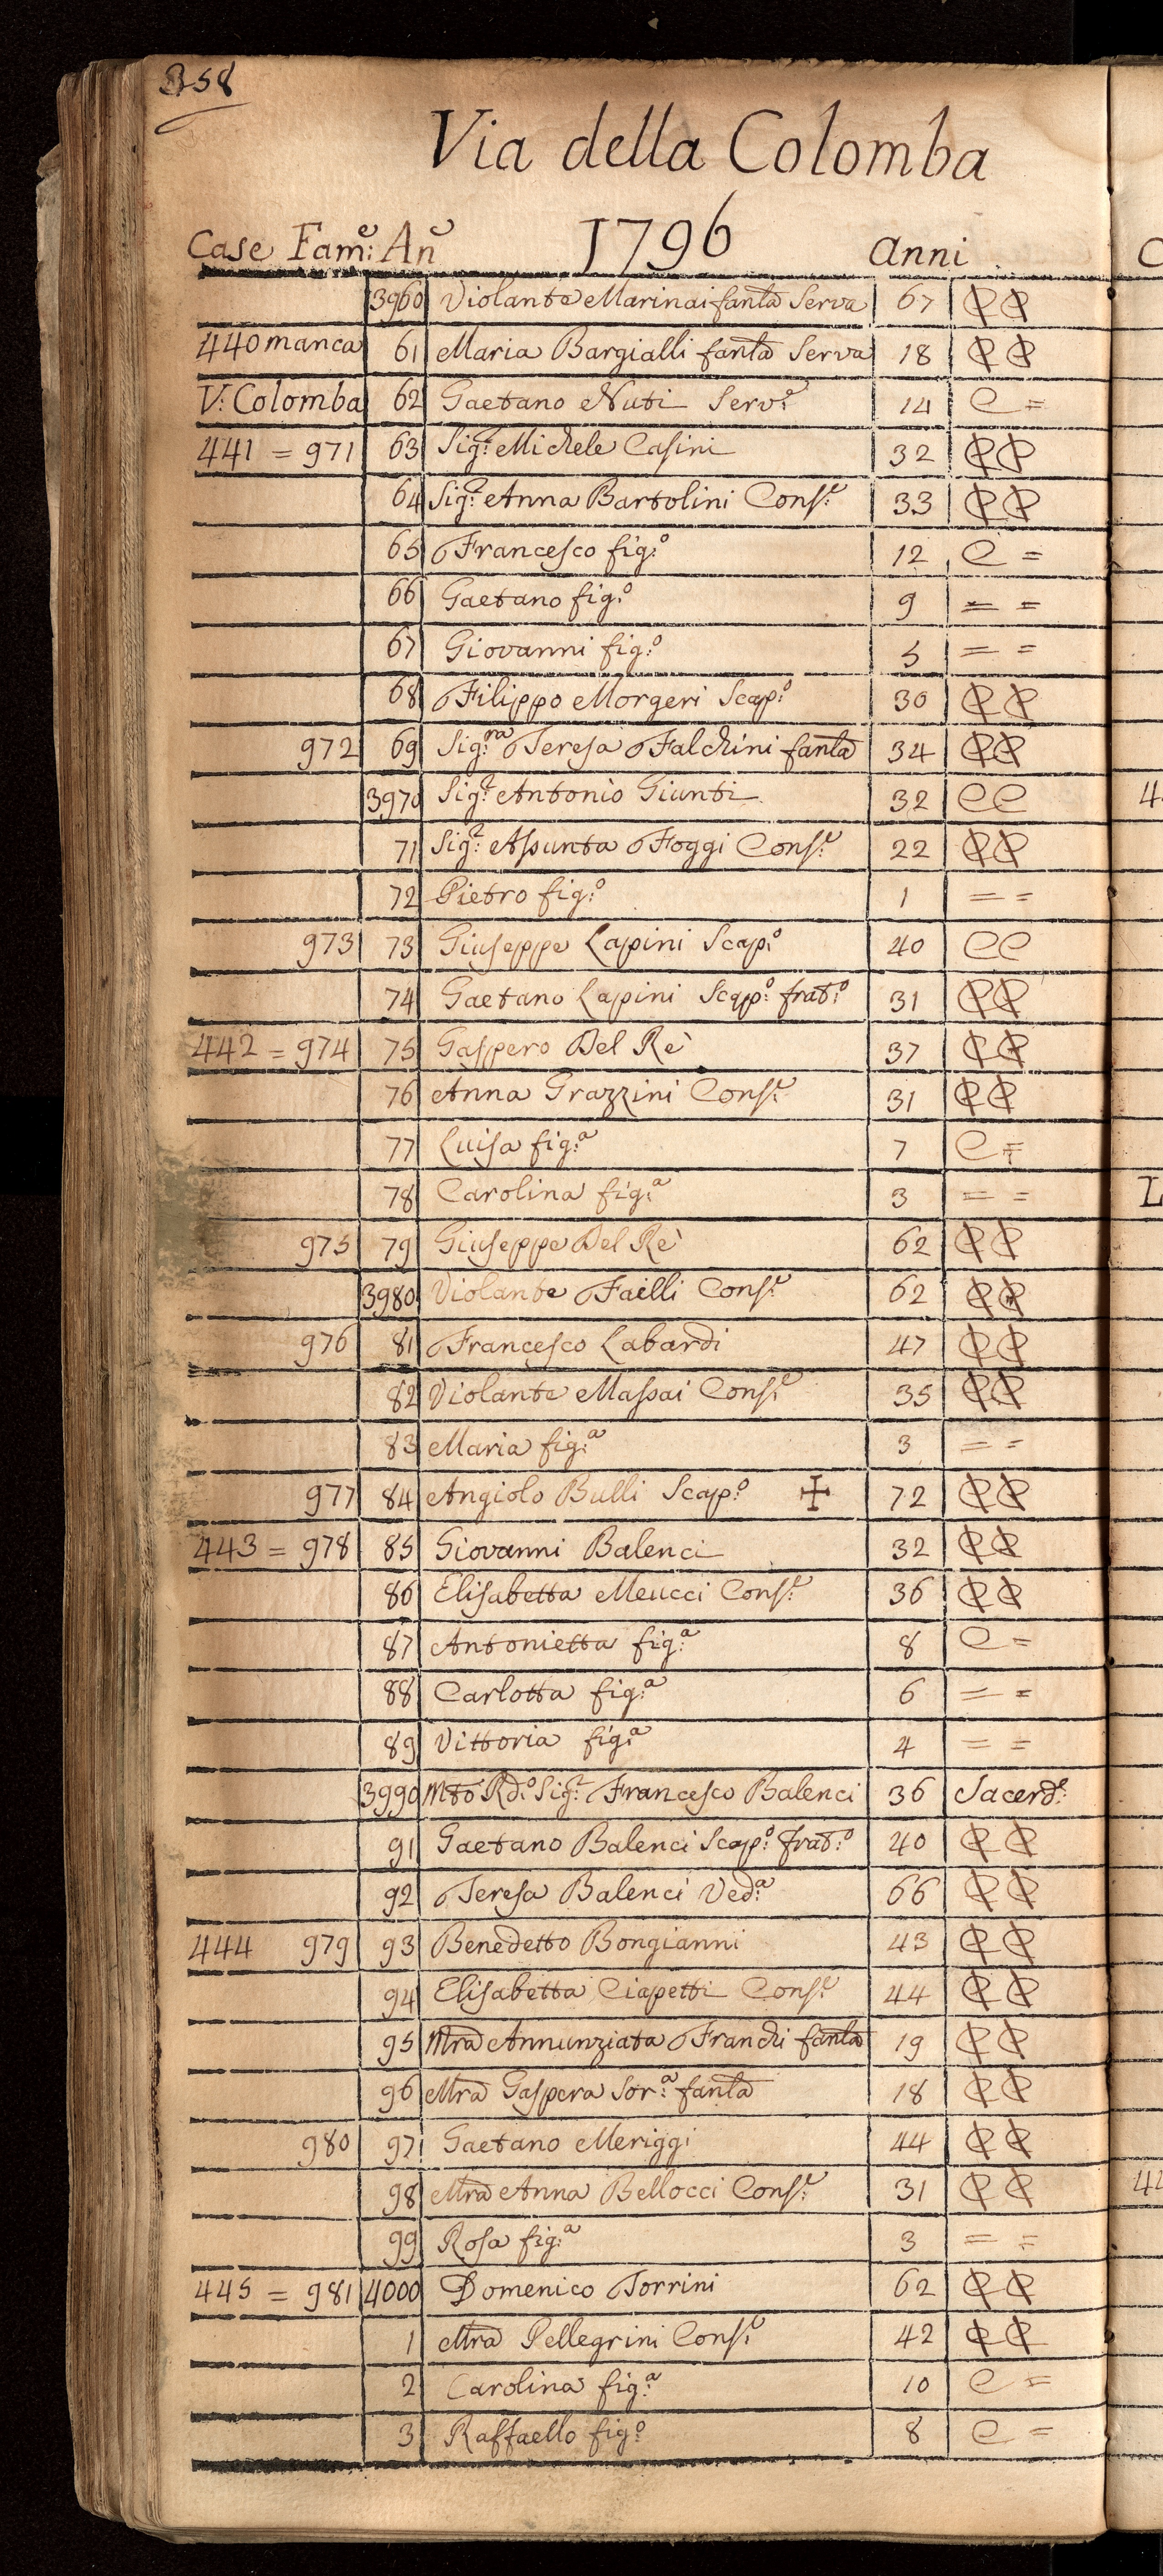 358
Via della Colomba
Case Fam:e An:e 1796 anni
3960 Violante Marinai fanla Serva 67 ₵ ₵
440 manca 61 Maria Bargialli fanla Serva 18 ₵ ₵
V: Colomba 62 Gaetano Nuti Serv:e 14 C =
441 = 971 63 Sig:r Michele Casini 32 ₵ ₵
64 Sig:r Anna Bartolini Cons:e 33 ₵ ₵
65 Francesco fig:o 12 C =
66 Gaetano fig:o 9 = =
67 Giovanni fig:o 5 = =
68 Filippo Morgeri Scap:o 30 ₵ ₵
972 69 Sig:ra Teresa Falchini fanla 34 ₵ ₵
3970 Sig:r Antonio Giunti 32 C C
71 Sig:r Assunta Foggi Cons:e 22 ₵ ₵
72 Pietro fig:o 1 = =
973 73 Giuseppe Lapini Scap:o 40 C C
74 Gaetano Lapini Scap:o frat:o 31 ₵ ₵
442 = 974 75 Gaspero Del Rè 37 ₵ ₵
76 Anna Grazzini Cons:e 31 ₵ ₵
77 Luisa fig:a 7 C =
78 Carolina fig:a 3 = =
975 79 Giuseppe Del Rè 62 ₵ ₵
3980 Violante Failli Cons:e 62 ₵ ₵
976 81 Francesco Labardi 47 ₵ ₵
82 Violante Massai Cons:e 35 ₵ ₵
83 Maria fig:a 3 = =
977 84 Angiolo Bulli Scap:o ✠ 72 ₵ ₵
443 = 978 85 Giovanni Balenci 32 ₵ ₵
86 Elisabetta Meucci Cons:e 36 ₵ ₵
87 Antonietta fig:a 8 C =
88 Carlotta fig:a 6 = =
89 Vittoria fig:a 4 = =
3990 Mto Rd:o Sig:r Francesco Balenci 36 Sacerd:e
91 Gaetano Balenci Scap:o frat:o 40 ₵ ₵
92 Teresa Balenci Ved:a 66 ₵ ₵
444 979 93 Benedetto Bongianni 43 ₵ ₵
94 Elisabetta Ciapetti Cons:e 44 ₵ ₵
95 Mra Annunziata Franchi fanla 19 ₵ ₵
96 Mra Gaspera Sor:a fanla 18 ₵ ₵
980 97 Gaetano Meriggi 44 ₵ ₵
98 Mra Anna Bellocci Cons:e 31 ₵ ₵
99 Rosa fig:a 3 = =
445 = 981 4000 Domenico Torrini 62 ₵ ₵
1 Mra Pellegrini Cons:e 42 ₵ ₵
2 Carolina fig:a 10 C =
3 Raffaello fig:o 8 C =